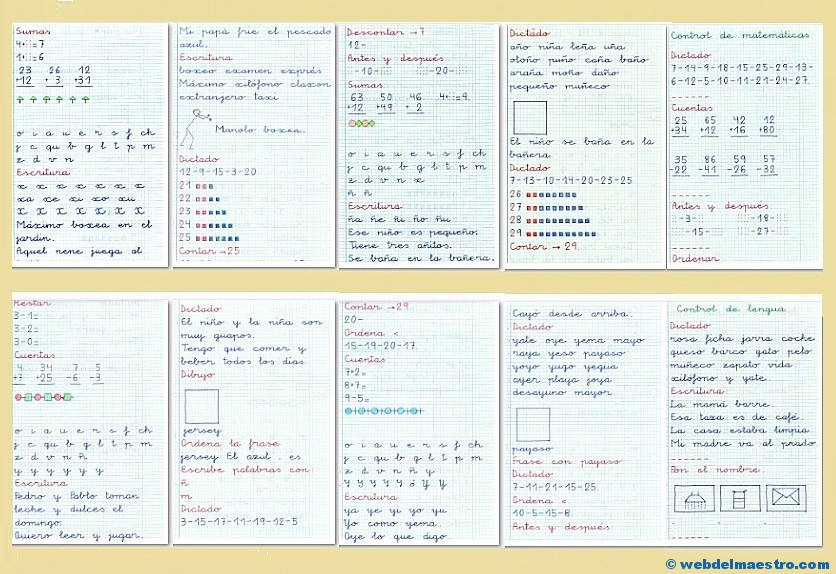 Sumas
4+::=7
1+::=6
23 26 12
+12 + 3 +31
o i a u e r s f ch
j c qu b g l t p m
z d v n
Escritura
x x x x x x x
xa xe xi xo xu
X X X X X X X
Máximo boxea en el
jardín.
Aquel nene juega al
Mi papá fríe el pescado
azul.
Escritura
boxeo examen exprés
Máximo xilófono claxon
extranjero taxi
Manolo boxea.
Dictado
12-9-15-3-20
21
22
23
24
25
Contar → 25
Descontar → 7
12-
Antes y después
-10- -20-
Sumas
63 50 46 4+::=9
+12 +49 + 2
o i a u e r s f ch
j c qu b g l t p m
z d v n x
ñ ñ
Escritura
ña ñe ñi ño ñu
Ese niño es pequeño.
Tiene tres años.
Se baña en la bañera.
Dictado
año niña leña uña
otoño puño caña baño
araña moño daño
pequeño muñeco
El niño se baña en la
bañera.
Dictado
7-13-10-14-20-23-25
26
27
28
29
Contar → 29.
Control de matemáticas
Dictado
7-14-9-18-15-25-29-13-
6-12-5-10-11-21-24-27.
Cuentas
25 65 42 12
+34 +12 +16 +80
35 86 59 57
-22 -41 -26 -32
Antes y después
-3- -18-
-15- -27-
Ordenar
Restar
3-1=
3-2=
3-0=
Cuentas
4 34 7 5
+7 +25 -6 -3
o i a u e r s f ch
j c qu b g l t p m
z d v n ñ
y y y y y y
Escritura
Pedro y Pablo toman
leche y dulces el
domingo.
Quiero leer y jugar.
Dictado
El niño y la niña son
muy guapos.
Tengo que comer y
beber todos los días.
Dibujo
jersey
Ordena la frase
jersey El azul . es
Escribe palabras con
ñ
m
Dictado
3-15-17-11-19-12-5
Contar → 29
20-
Ordena <
15-19-20-17.
Cuentas
7+2=
8+7=
9-5=
o i a u e r s f ch
j c qu b g l t p m
z d v n ñ y
Y Y Y Y Y Y Y
Escritura
ya ye yi yo yu
Yo como yema.
Oye lo que digo.
Cayó desde arriba.
Dictado
yate oye yema mayo
raya yeso payaso
yoyo yugo yegua
ayer playa joya
desayuno mayor
payaso
Frase con payaso
Dictado
7-11-21-15-25.
Ordena <
10-5-15-8.
Antes y después
Control de lengua
Dictado
rosa ficha jarra coche
queso barco gato pelo
muñeco zapato vida
xilófono y yate.
Escritura
La mamá barre.
Esa taza es de café.
La casa estaba limpia.
Mi madre va al prado
Pon el nombre.
© webdelmaestro.com